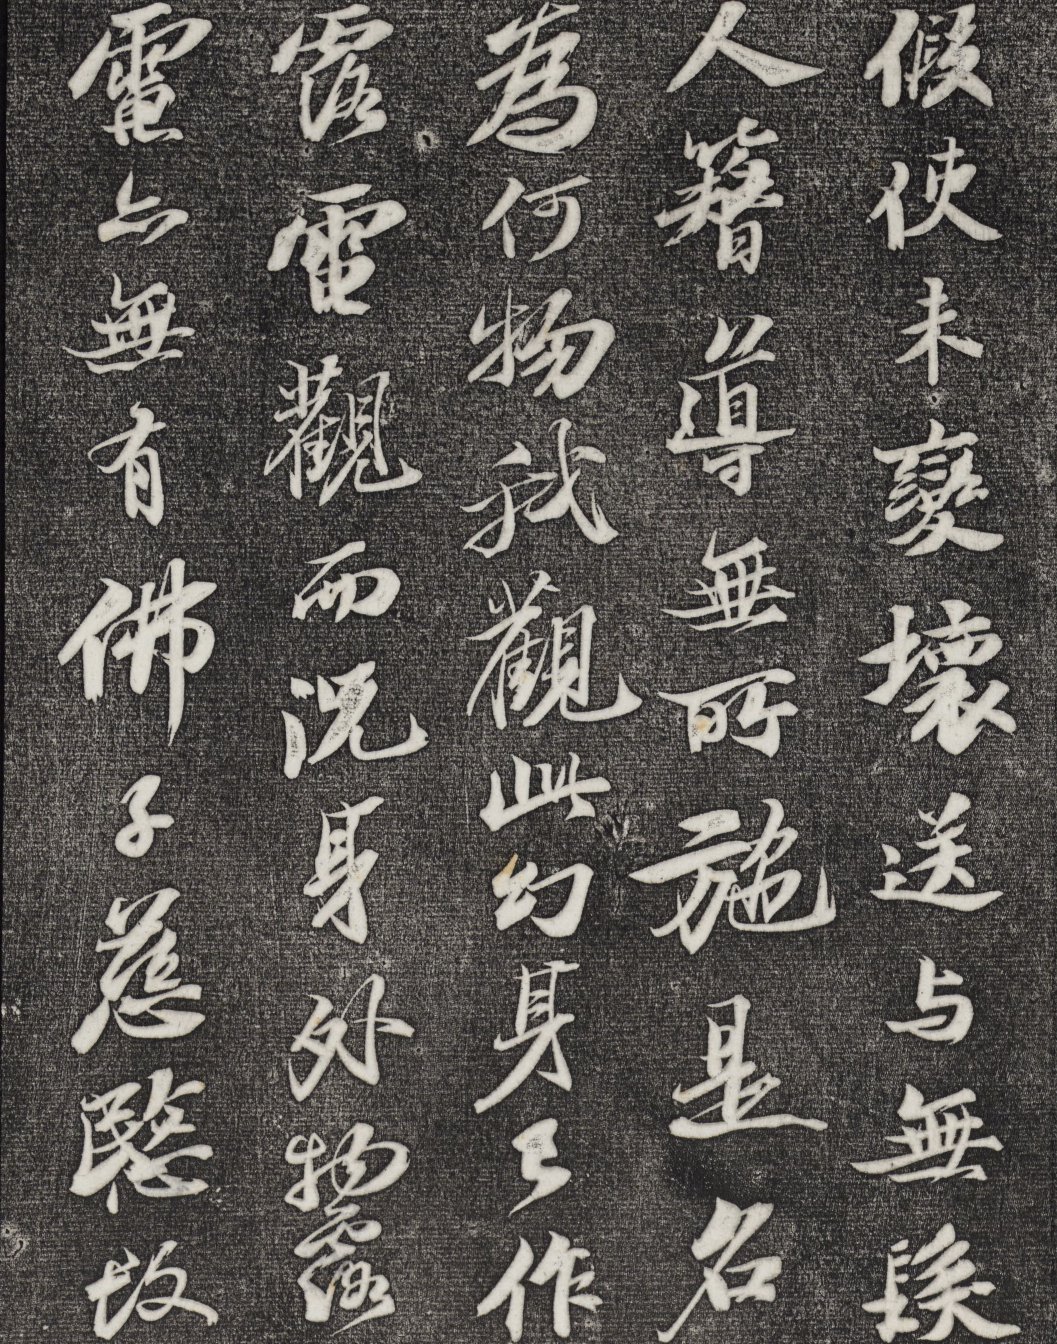 假使未變壞送与無㠯
人簪導無所施是名
為何物我觀此幻身已作
露電觀而況身外物露
電亦無有佛子慈愍故